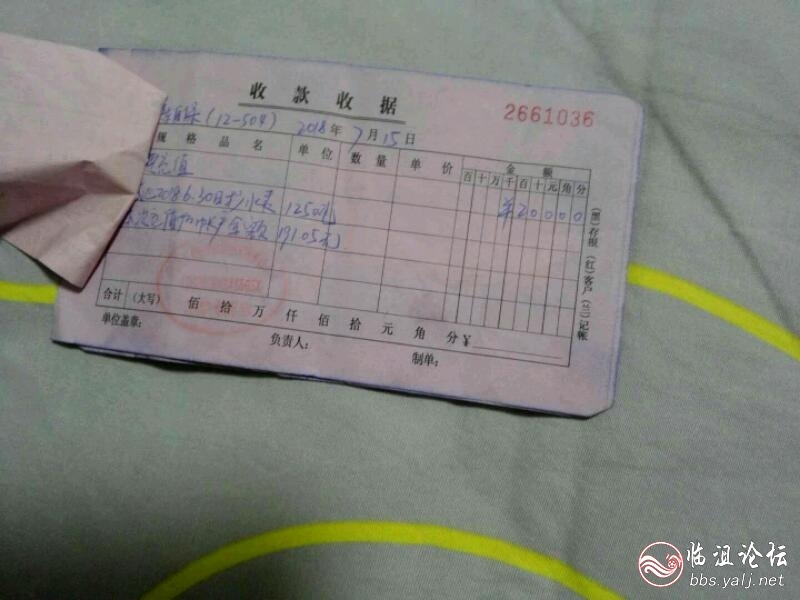 收款收据
2661036
(12-504) 2018年7月15日
规格品名 单位 数量 单价 金额
百十万千百十元角分
充值 ¥20000
2018.6.30日 水表 1250吨
金额191.05元
合计 (大写) 佰拾万仟佰拾元角分¥
单位盖章: 负责人: 制单:
(黑)存根 (红)客户 (兰)记帐
临沮论坛
bbs.yalj.net